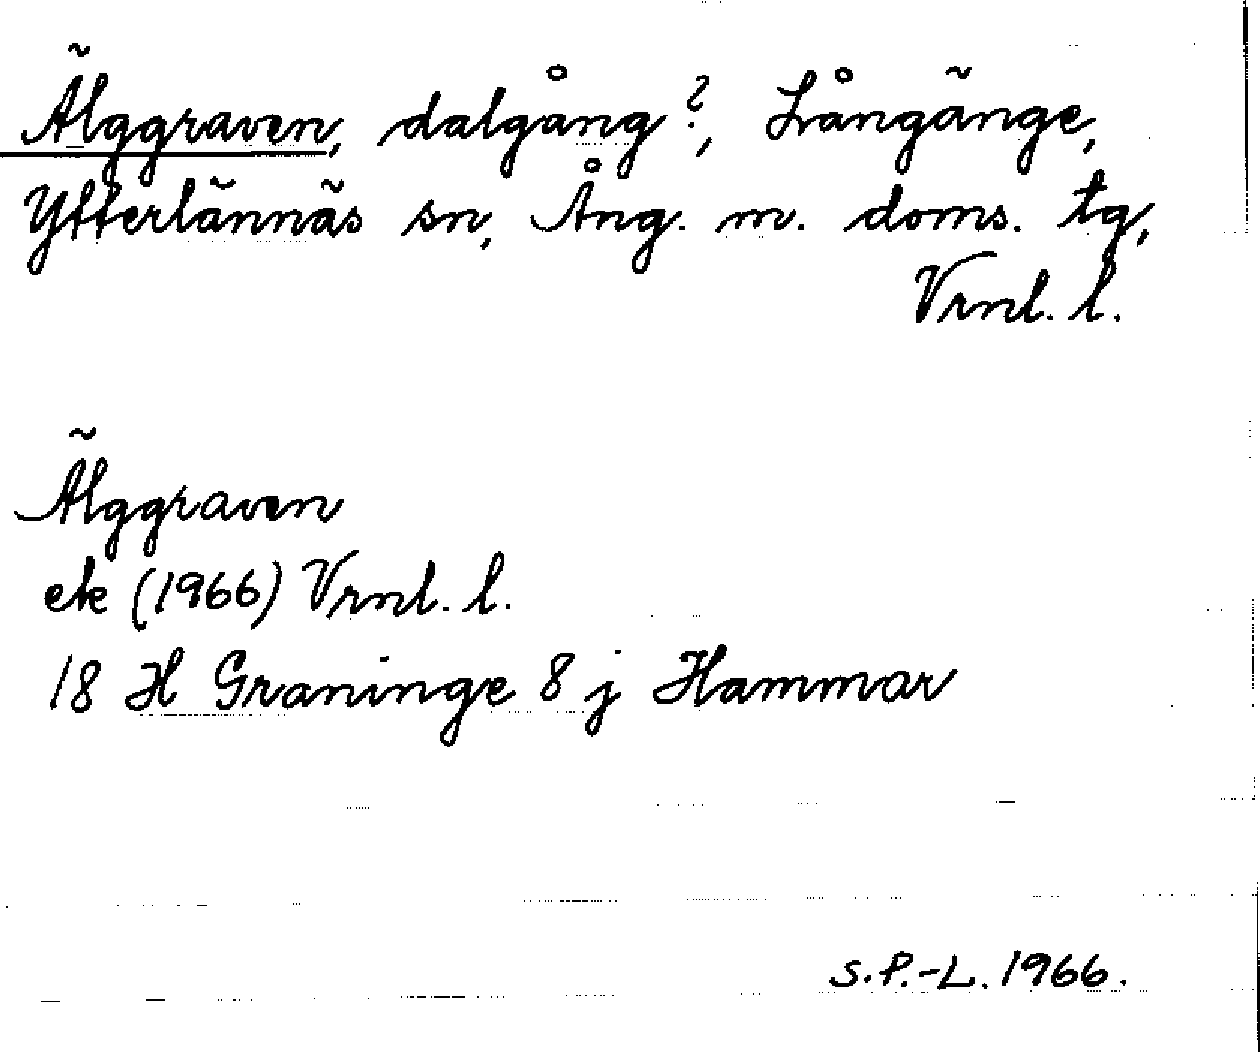 Älggraven, dalgång?, Långänge,
Ytterlännäs sn, Ång. m. doms. tg,
Vrnl. l.
Älggraven
ek (1966) Vrnl. l.
18 H Graninge 8 j Hammar
S.P.-L. 1966.